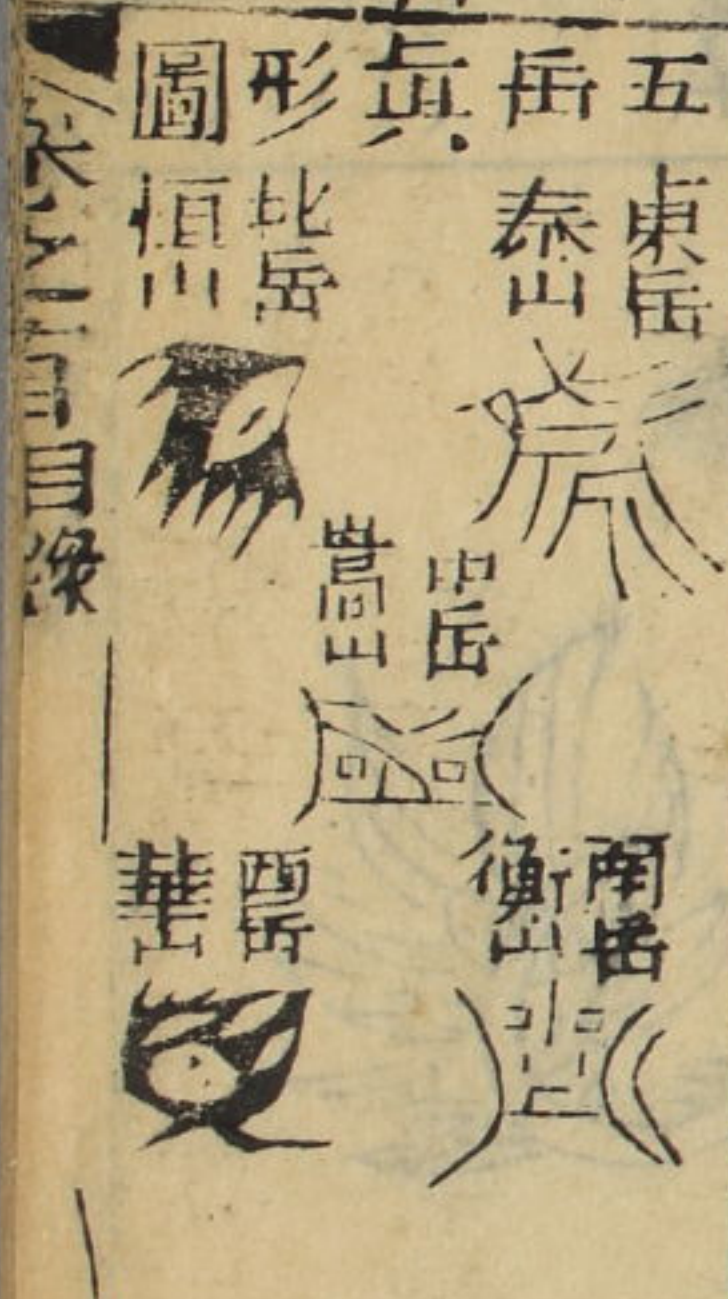 五岳真形圖
東岳
泰山
北岳
恒山
中岳
嵩山
南岳
衡山
西岳
華山
目錄